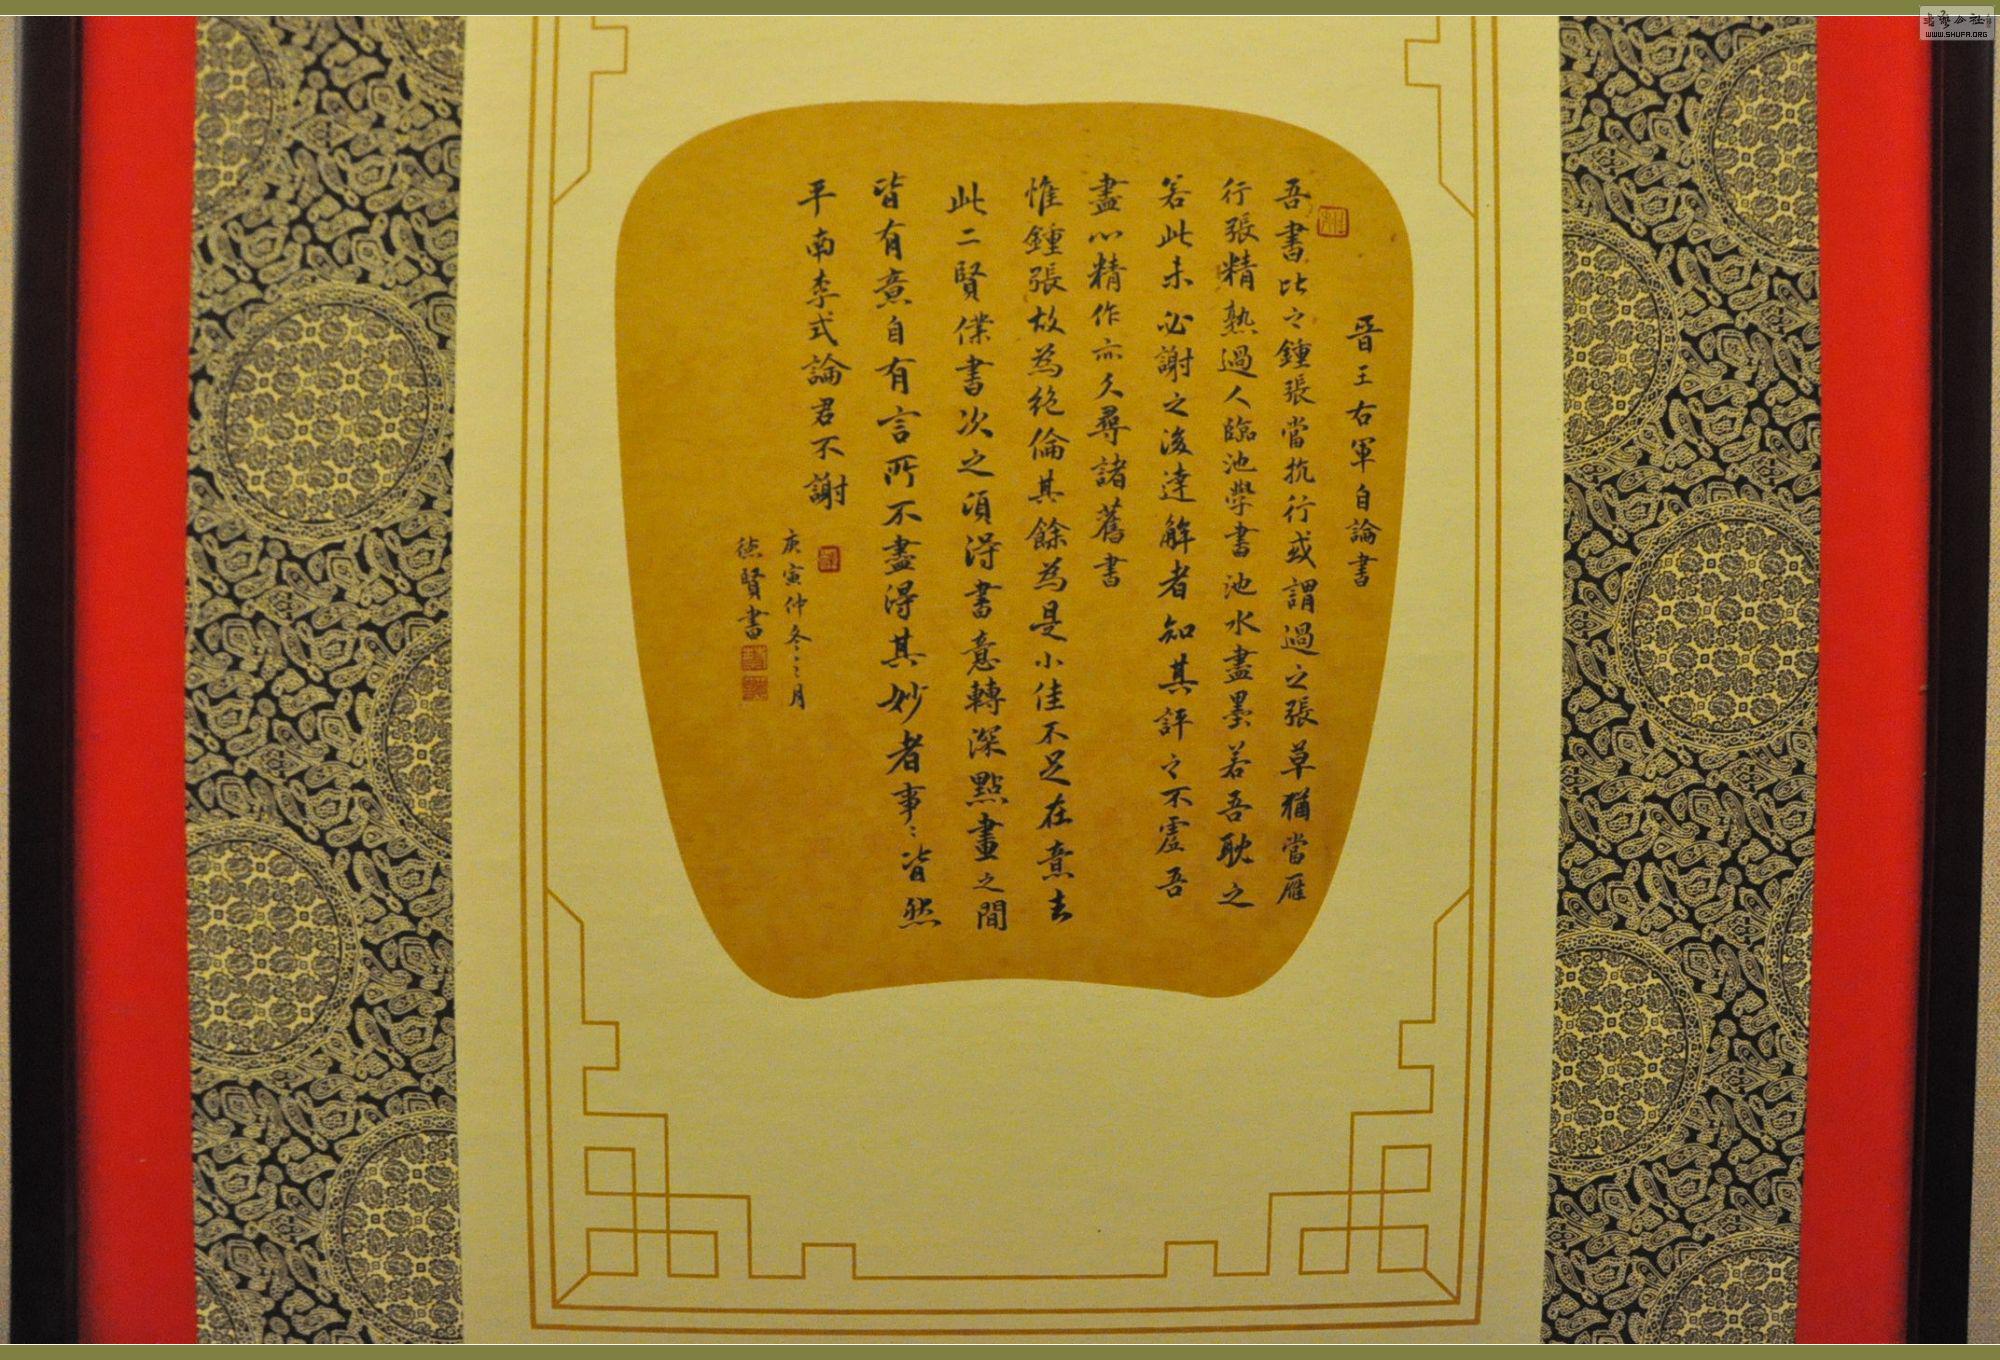 晉王右軍自論書
吾書比之鍾張當抗行或謂過之張草猶當雁
行張精熟過人臨池學書池水盡墨若吾耽之
若此未必謝之後達解者知其評之不虛吾
盡心精作亦久尋諸舊書
惟鍾張故為絕倫其餘為是小佳不足在意去
此二賢僕書次之須得書意轉深點畫之間
皆有意自有言所不盡得其妙者事〻皆然
平南李式論君不謝
庚寅仲冬之月
德賢書
書艺公社
WWW.SHUFA.ORG